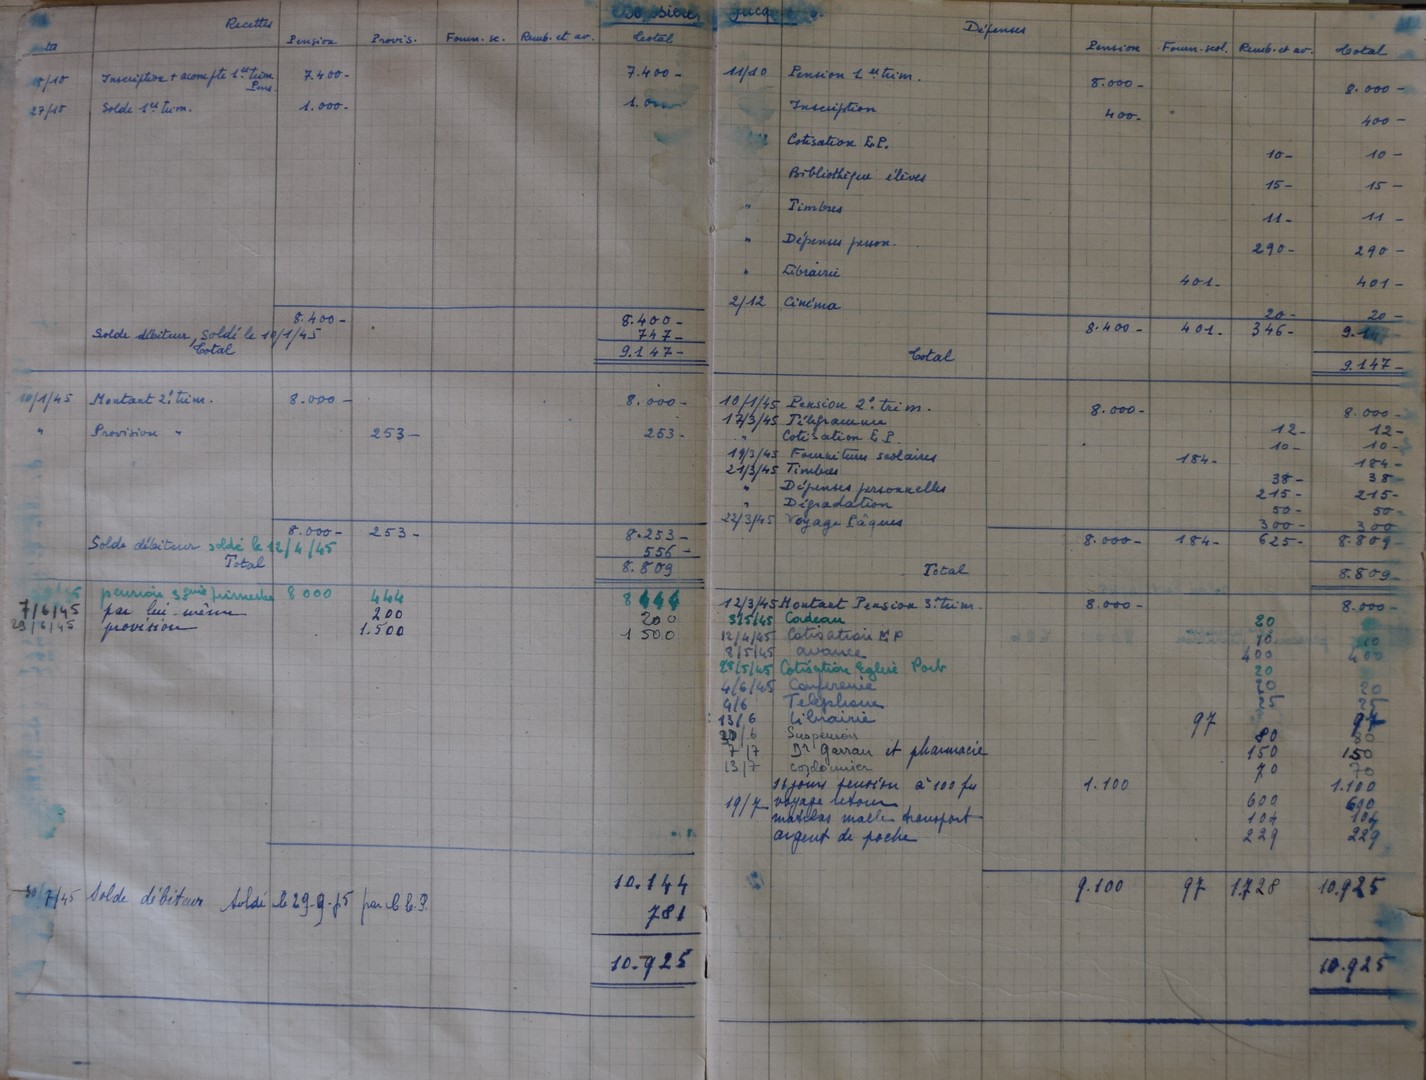 Recettes
Pension Provis. Fourn. sc. Remb. et av. Total
15/10 Inscription + acompte 1er trim. 7.400- 7.400-
Pens.
27/10 Solde 1er trim. 1.000- 1.000
8.400- 8.400-
Solde débiteur, soldé le 10/1/45 747-
Total 9.147-
10/1/45 Montant 2e trim. 8.000- 8.000-
" Provision " 253- 253-
8.000- 253- 8.253-
Solde débiteur soldé le 12/4/45 556-
Total 8.809
pension 3eme trimestre 8 000 444 8 444
7/6/45 par lui-même 200 200
29/6/45 provision 1.500 1 500
10.144
30/7/45 Solde débiteur Soldé le 29-9-45 par 781
10.925
Dépenses
Pension Fourn. scol. Remb. et av. Total
11/10 Pension 1er trim. 8.000- 8.000-
Inscription 400- 400-
Cotisation E.P. 10- 10-
Bibliothèque élèves 15- 15-
" Timbres 11- 11-
" Dépenses person. 290- 290-
" Librairie 401- 401-
2/12 Cinéma 20- 20-
8.400- 401- 346- 9.147
Total 9.147-
10/1/45 Pension 2e trim. 8.000- 8.000-
17/3/45 Télégramme 12- 12-
" Cotisation E.P. 10- 10-
19/3/45 Fourniture scolaires 184- 184-
21/3/45 Timbres 38- 38-
" Dépenses personnelles 215- 215-
" Dégradation 50- 50-
22/3/45 Voyage Pâques 300- 300
8.000- 184- 625- 8.809-
Total 8.809-
12/3/45 Montant Pension 3e trim. 8.000- 8.000-
3/5/45 Cadeau 20
12/4/45 Cotisation E P 10 10
8/5/45 avance 400 400
28/5/45 Cotisation Eglise 20
4/6/45 Conférence 20 20
4/6 Téléphone 25 25
13/6 Librairie 97 97
30/6 Suspensoir 80 80
7/7 Dr Garrau et pharmacie 150 150
13/7 cordonnier 70 70
11 jours pension à 100 frs 1.100 1.100
19/7 voyage retour 600 600
matelas malle transport 104 104
argent de poche 229 229
9.100 97 1728 10.925
10.925